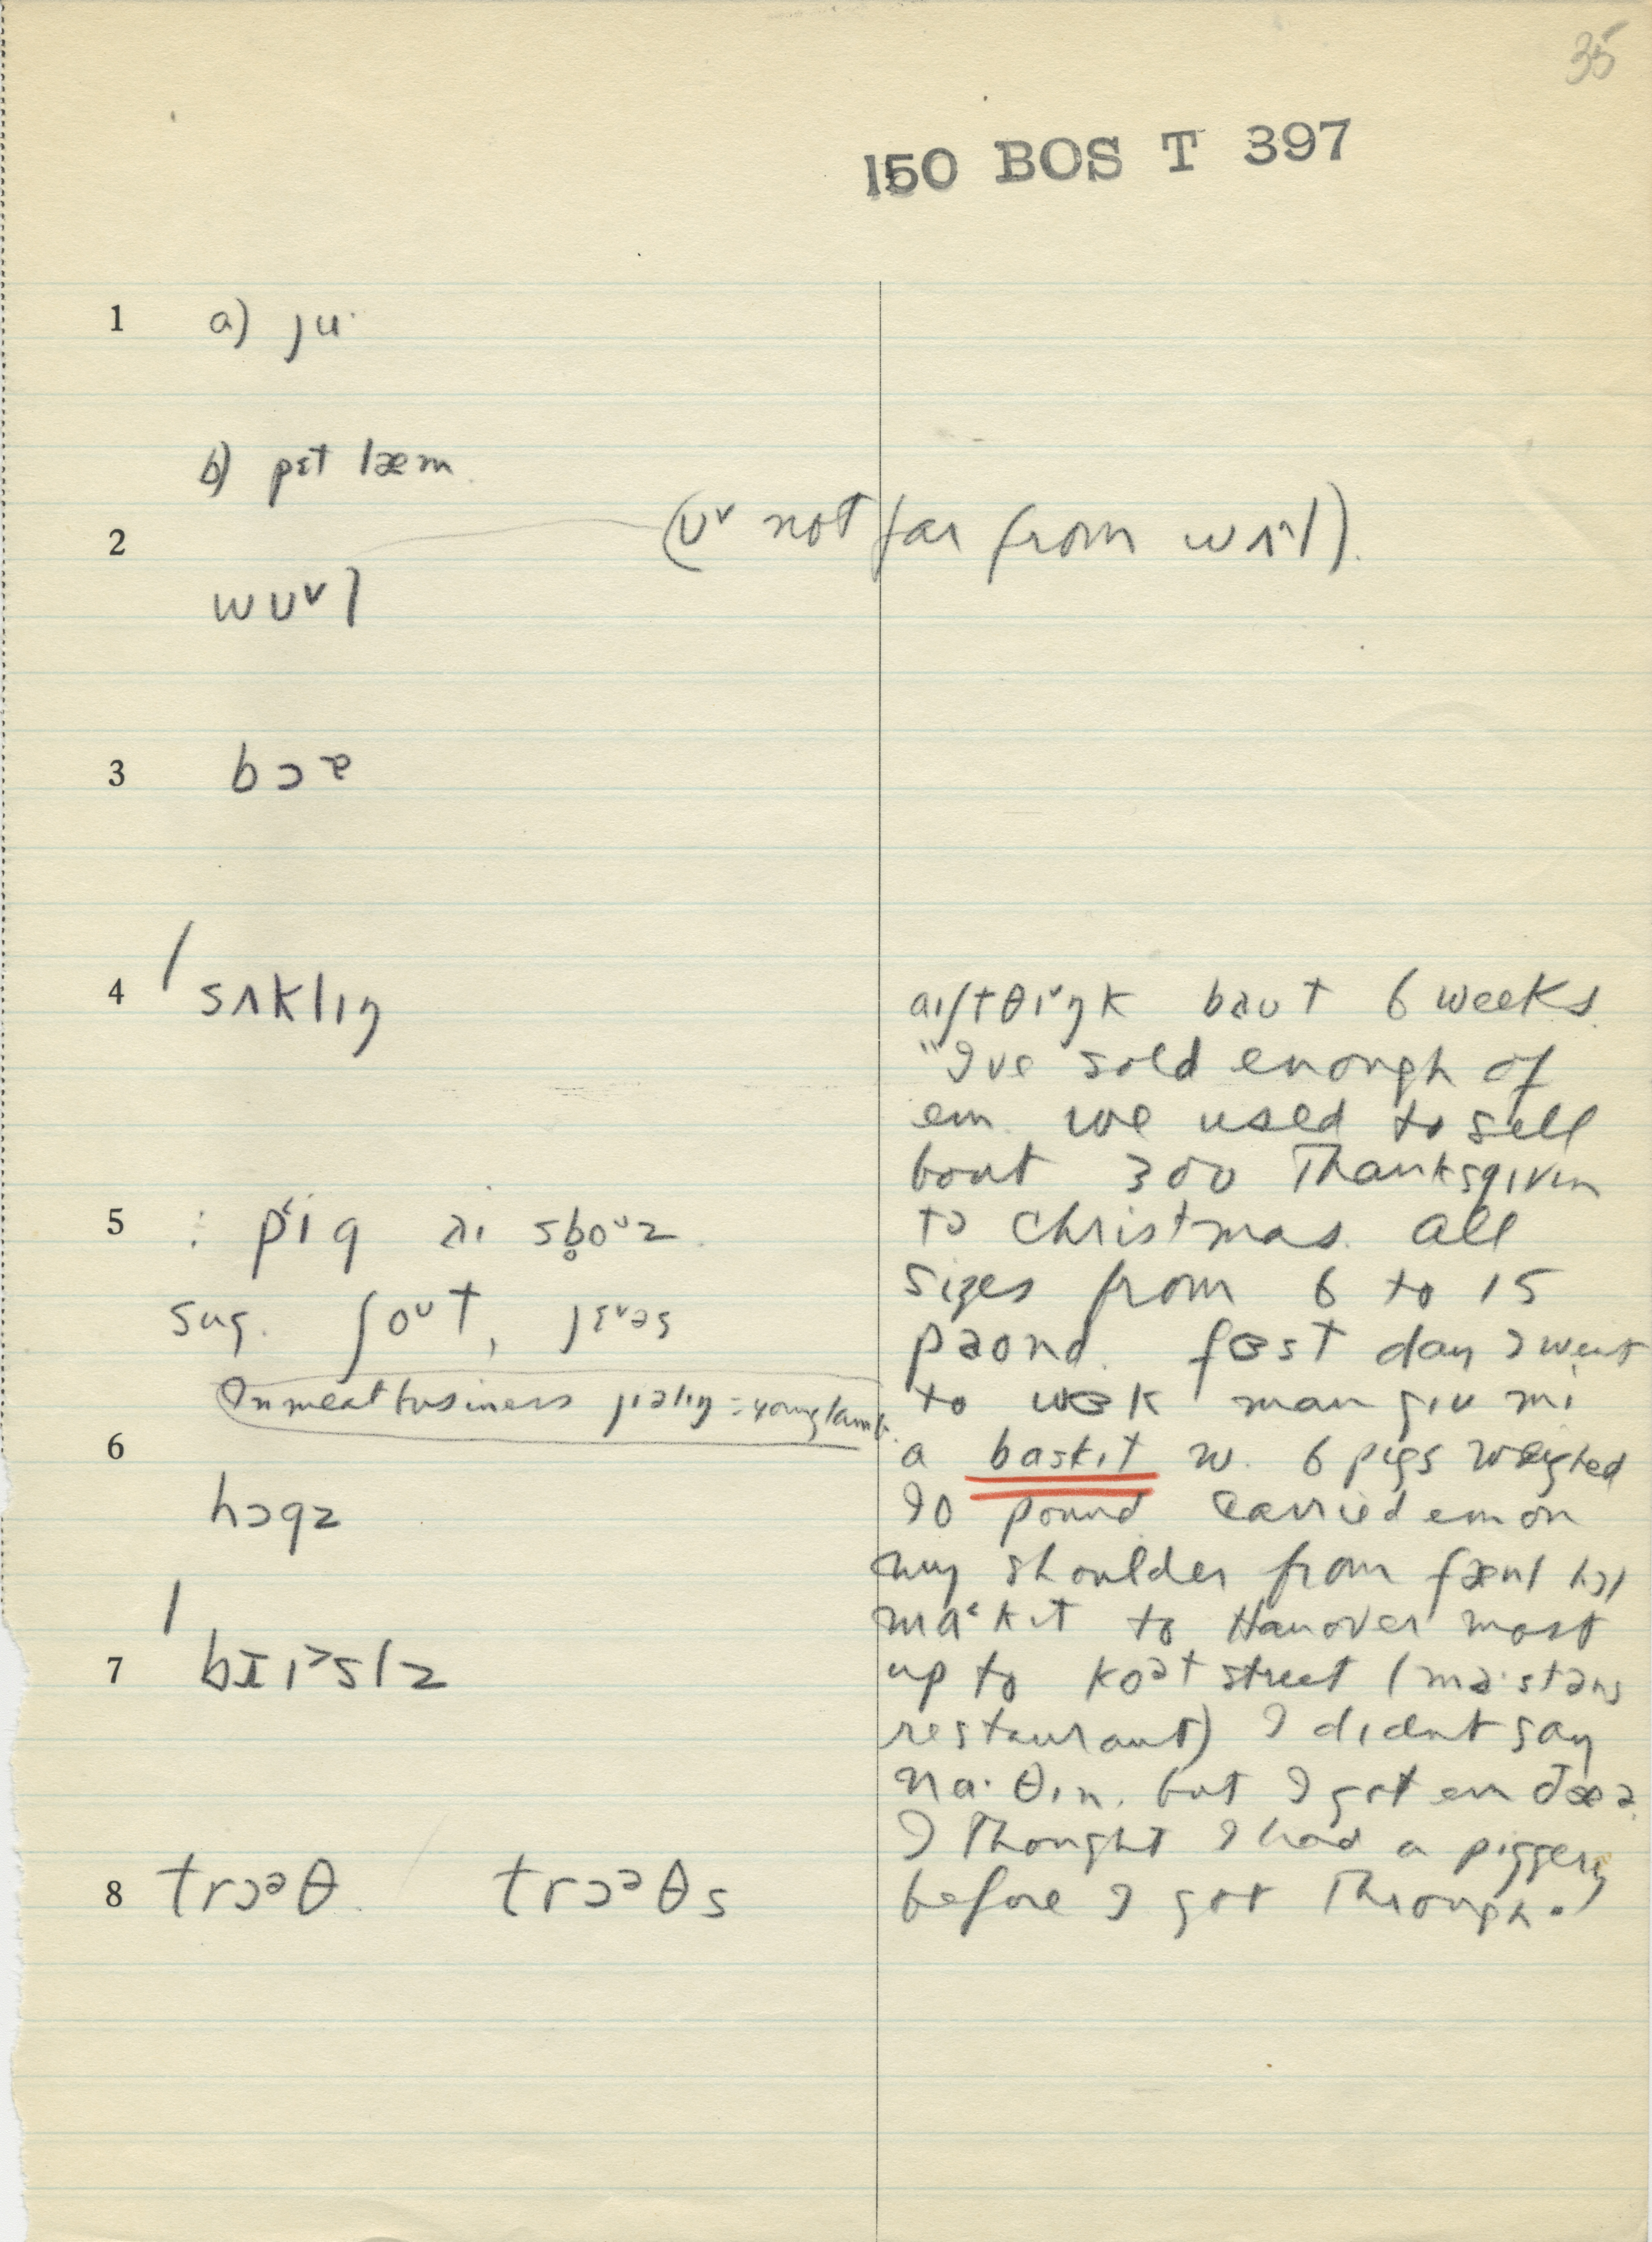 35
150 BOS T 397
1 a) ju·
b) pɛt læm
2 (ᴜᵛ not far from wʌ^l).
wᴜᵛl
3 bɔᵊ
4 / sʌklɪŋ
5 : pɪg əɪ sb̥oᵁz
sug. ʃoᵁt, jɛᵛəs
In meat business jiəlɪŋ = young lamb.
6
hɔgz
/
7 bɪɪˀslz
8 trɔᵊθ trɔᵊθs
aɪ/tθɪᵛŋk bəut 6 weeks
"I've sold enough of
em. we used to sell
bout 300 Thanksgivin
tə Christmas. all
sizes from 6 to 15
paond. fɜst day I went
to wɜk man gɪv mi
a baskɪt w. 6 pigs weighed
90 pound carried em on
my shoulder from fænl hɔl
ma˂kɪt to Hanover most
up to koət street (ma·stənz
restaurant) I didnt say
na·θɪn. but I got em ðæə
I thought I had a piggery
before I got through.)